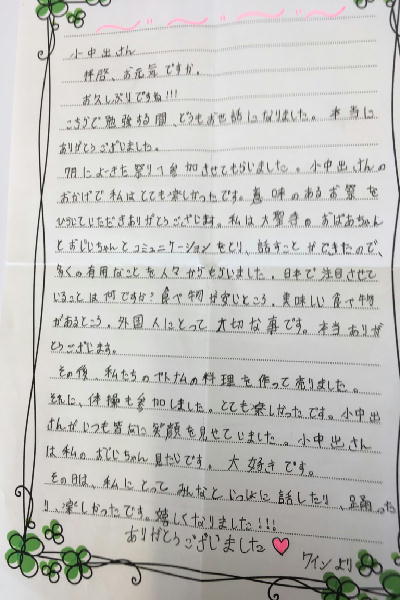 小中出さん
拝啓、お元気ですか。
お久しぶりですね!!!
こちらで勉強する間、どうもお世話になりました。本当に
ありがとうございました。
7月によーきた祭りへ参加させてもらいました。小中出さんの
おかげで私はとても楽しかったです。意味のあるお祭を
ひらいていただきありがとうございます。私は大聖寺のおばあちゃん
とおじいちゃんとコミュニケーションをとり、話すことができたので、
多くの有用なことを人々からもらいました。日本で注目させて
いることは何ですか?食べ物が安いところ、美味しい食べ物
があるところ、外国人にとって大切な事です。本当ありが
とうございます。
その後、私たちのベトナムの料理を作って売りました。
それに、体操も参加しました。とても楽しかったです。小中出
さんがいつも皆なに笑顔を見せていました。小中出さん
は私のおじいちゃん見たいです。大好きです。
その日は、私にとってみんなといっしょに話したり、踊った
り、楽しかったです。嬉しくなりました!!!
ありがとうございました
ワインより